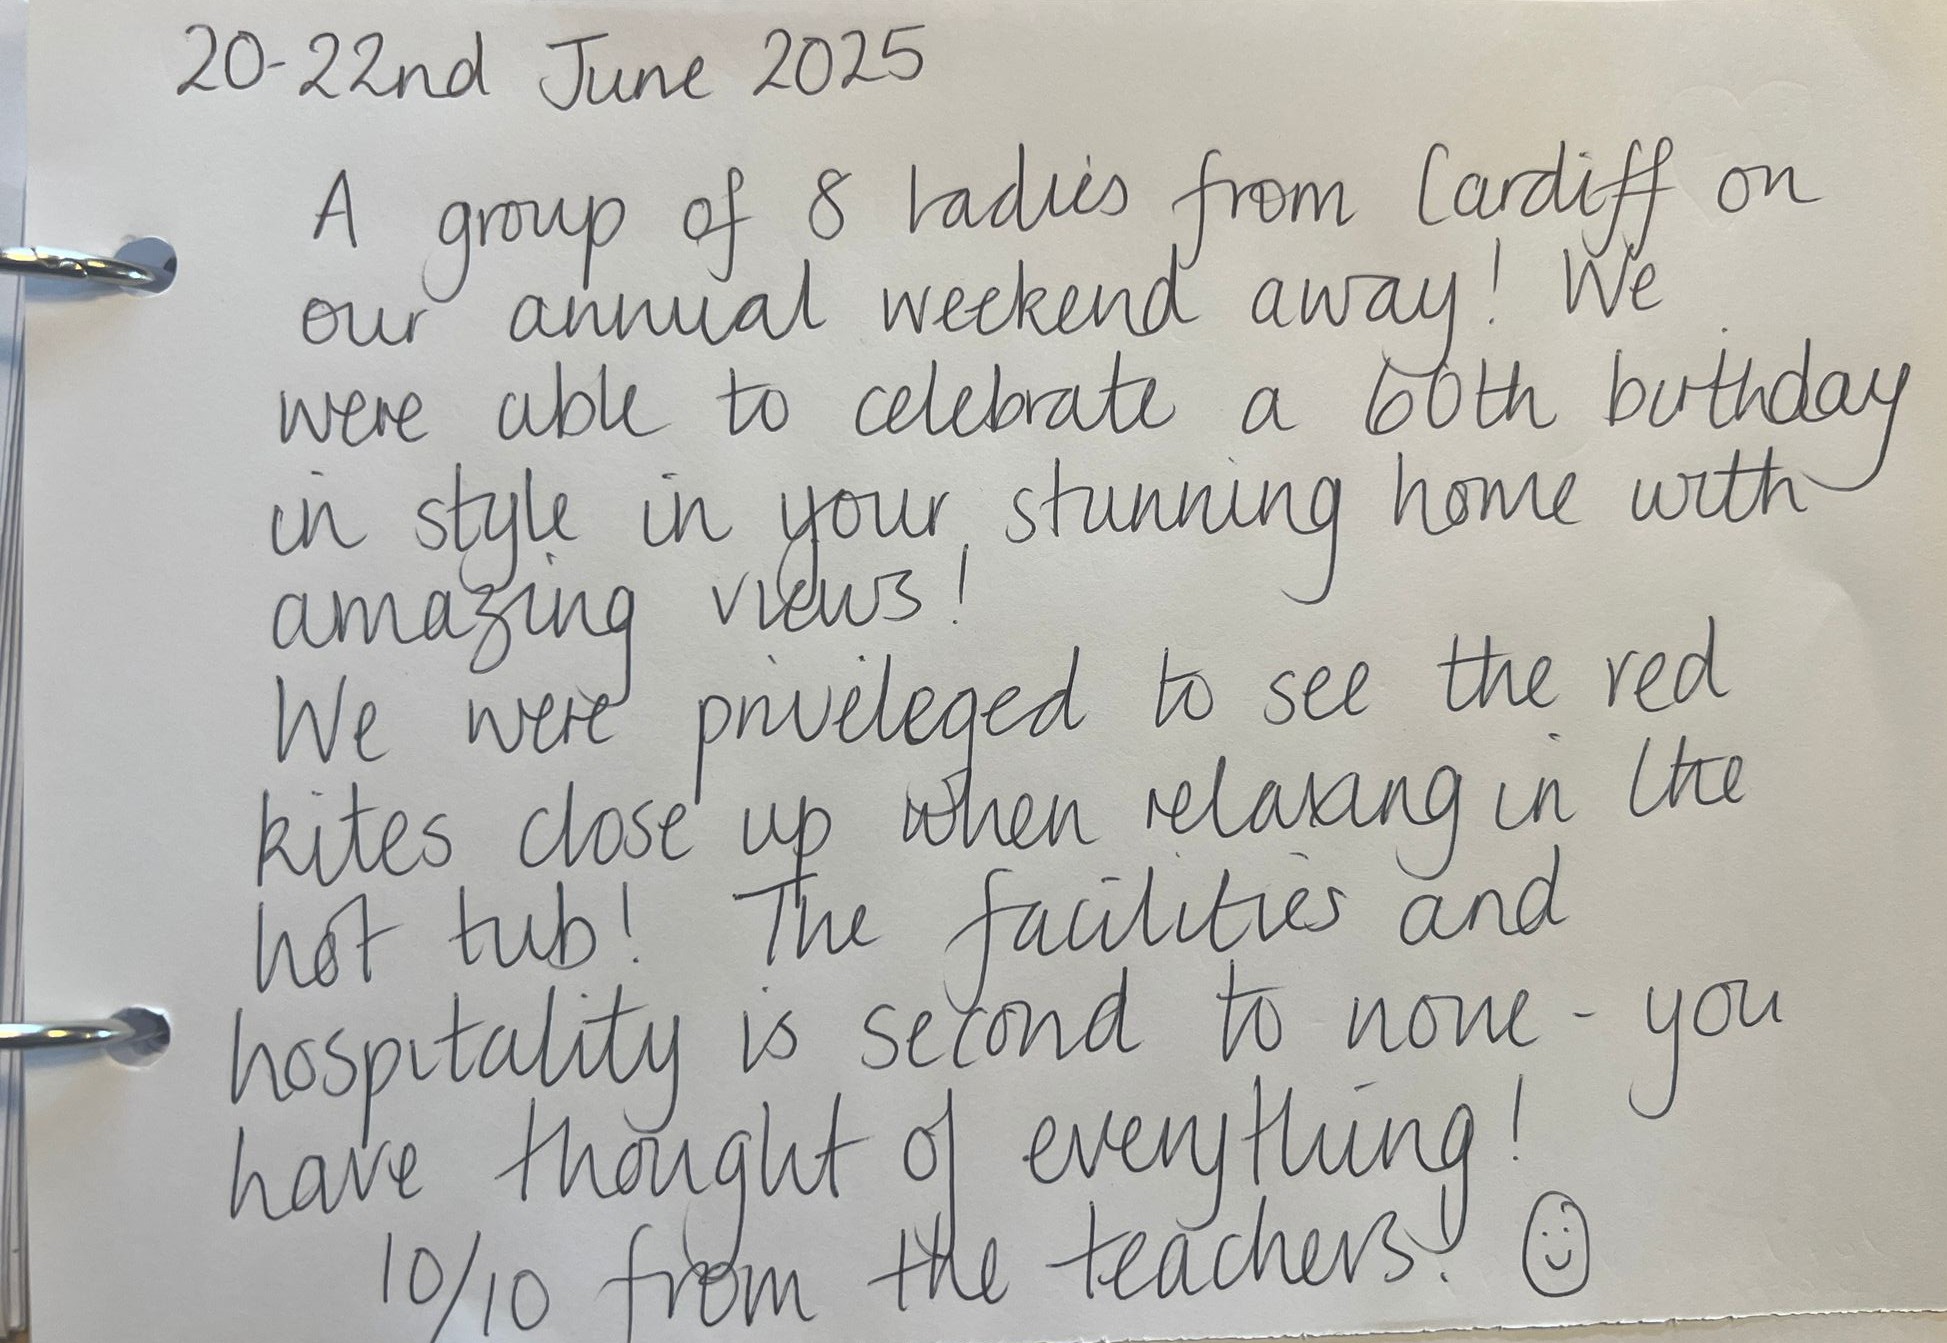 20-22nd June 2025
A group of 8 ladies from Cardiff on
our annual weekend away! We
were able to celebrate a 60th birthday
in style in your stunning home with
amazing views!
We were privileged to see the red
kites close up when relaxing in the
hot tub! The facilities and
hospitality is second to none - you
have thought of everything!
10/10 from the teachers! ☺